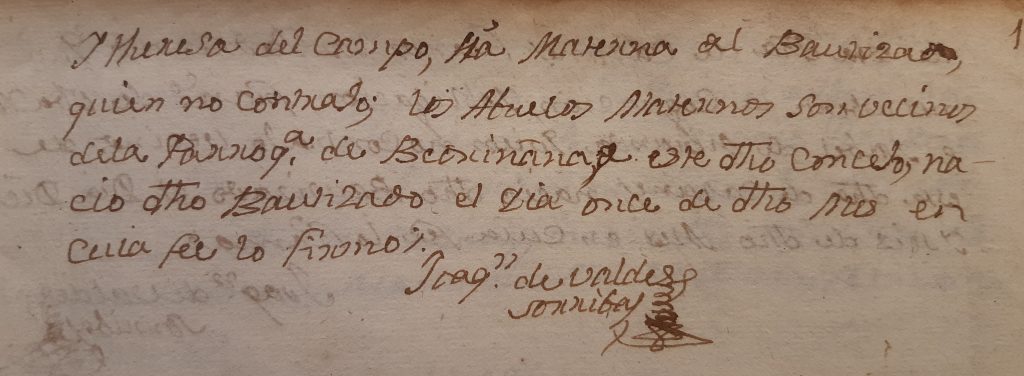 1
y theresa del Campo, tía Materna del Bautizado,
quien no Contrajo; los Abuelos Maternos son vecinos
dela Parroq.ª de este dho Concejo, na-
cio dho Bautizado el dia once de dho Mes en
Cuia fee lo firmo.
Joaq.n de Valdes
Sorribas